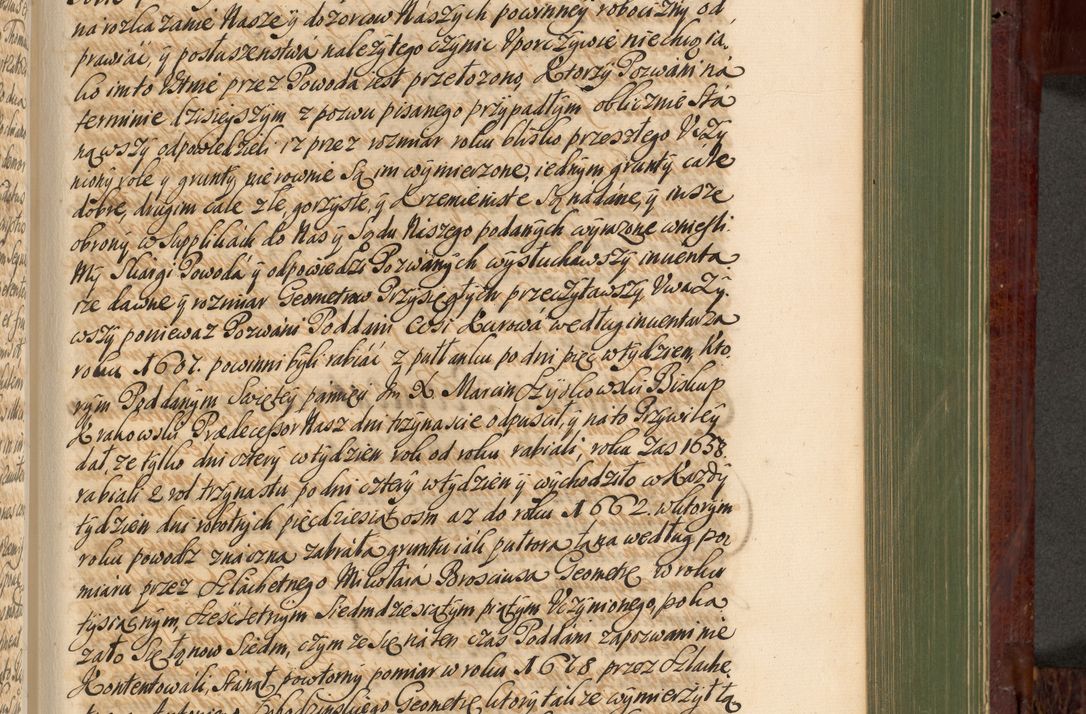 na rozkazanie Nasze y dozorcow Naszych powinney robocizny od
prawiać, y posłuszenstwá należytego czynic Uporczywie niechcą ia
ko im to Utmie przez Powoda iest przełozono, Ktorzy Pozwáni ná
terminie dzisieyszym z pozwu pisanego przypadłym oblicznie stá
nąwszy odpowiedzieli iz przez rozmiar roku blisko przeszłego Uczy
niony role y grunty nierownie są im wymierzone, iednym grunty cale
dobre, drugim cale złe, gorzyste, y Krzemieniste są nadáne, y insze
obrony w Supplikách do Nas y Sądu Naszego podanych wyrazone wniesli.
My Skargi Powodá y odpowiedzi Pozwánych wysłuchawszy inwenta
rze dawne y rozmiar Geometrow Przysięgłych przeczytawszy Uwazy
wszy poniewaz Pozwáni Poddáni wsi Kurowá według inwentarza
roku 1607. powinni byli rabiáć z pułłanku po dni pięć w tydzien, Kto
rym Poddanym Swiętey pamięci Jm X Marcin Szyszkowski Biskup
Krakowski Prædecessor Nasz dni trzynascie odpuscił, y ná to Przywiley
dał, ze tylko dni cztery w tydzien rok od roku rabiali, roku zas 1658.
rabiali z rol trzynastu po dni cztery w tydzien y wychodziło w Kazdy
tydzien dni robotnych pięcdziesiąt osm az do roku 1662. w ktorym
roku powodz znaczna zabráła gruntu iák pułtora łana według po
miaru przez Szlachetnego Mikołaiá Brosciusa Geometrę w roku
tysiącnym, szescsetnym siedmdziesiątym piątym Uczynionego, poka
zało się łanow siedm, czym ze się ná ten czas Poddáni zapozwani nie
Kontentowali, stánął powtorny pomiar w roku 1678. przez Szlache
Geometrę ktory tákze wymierzył łá